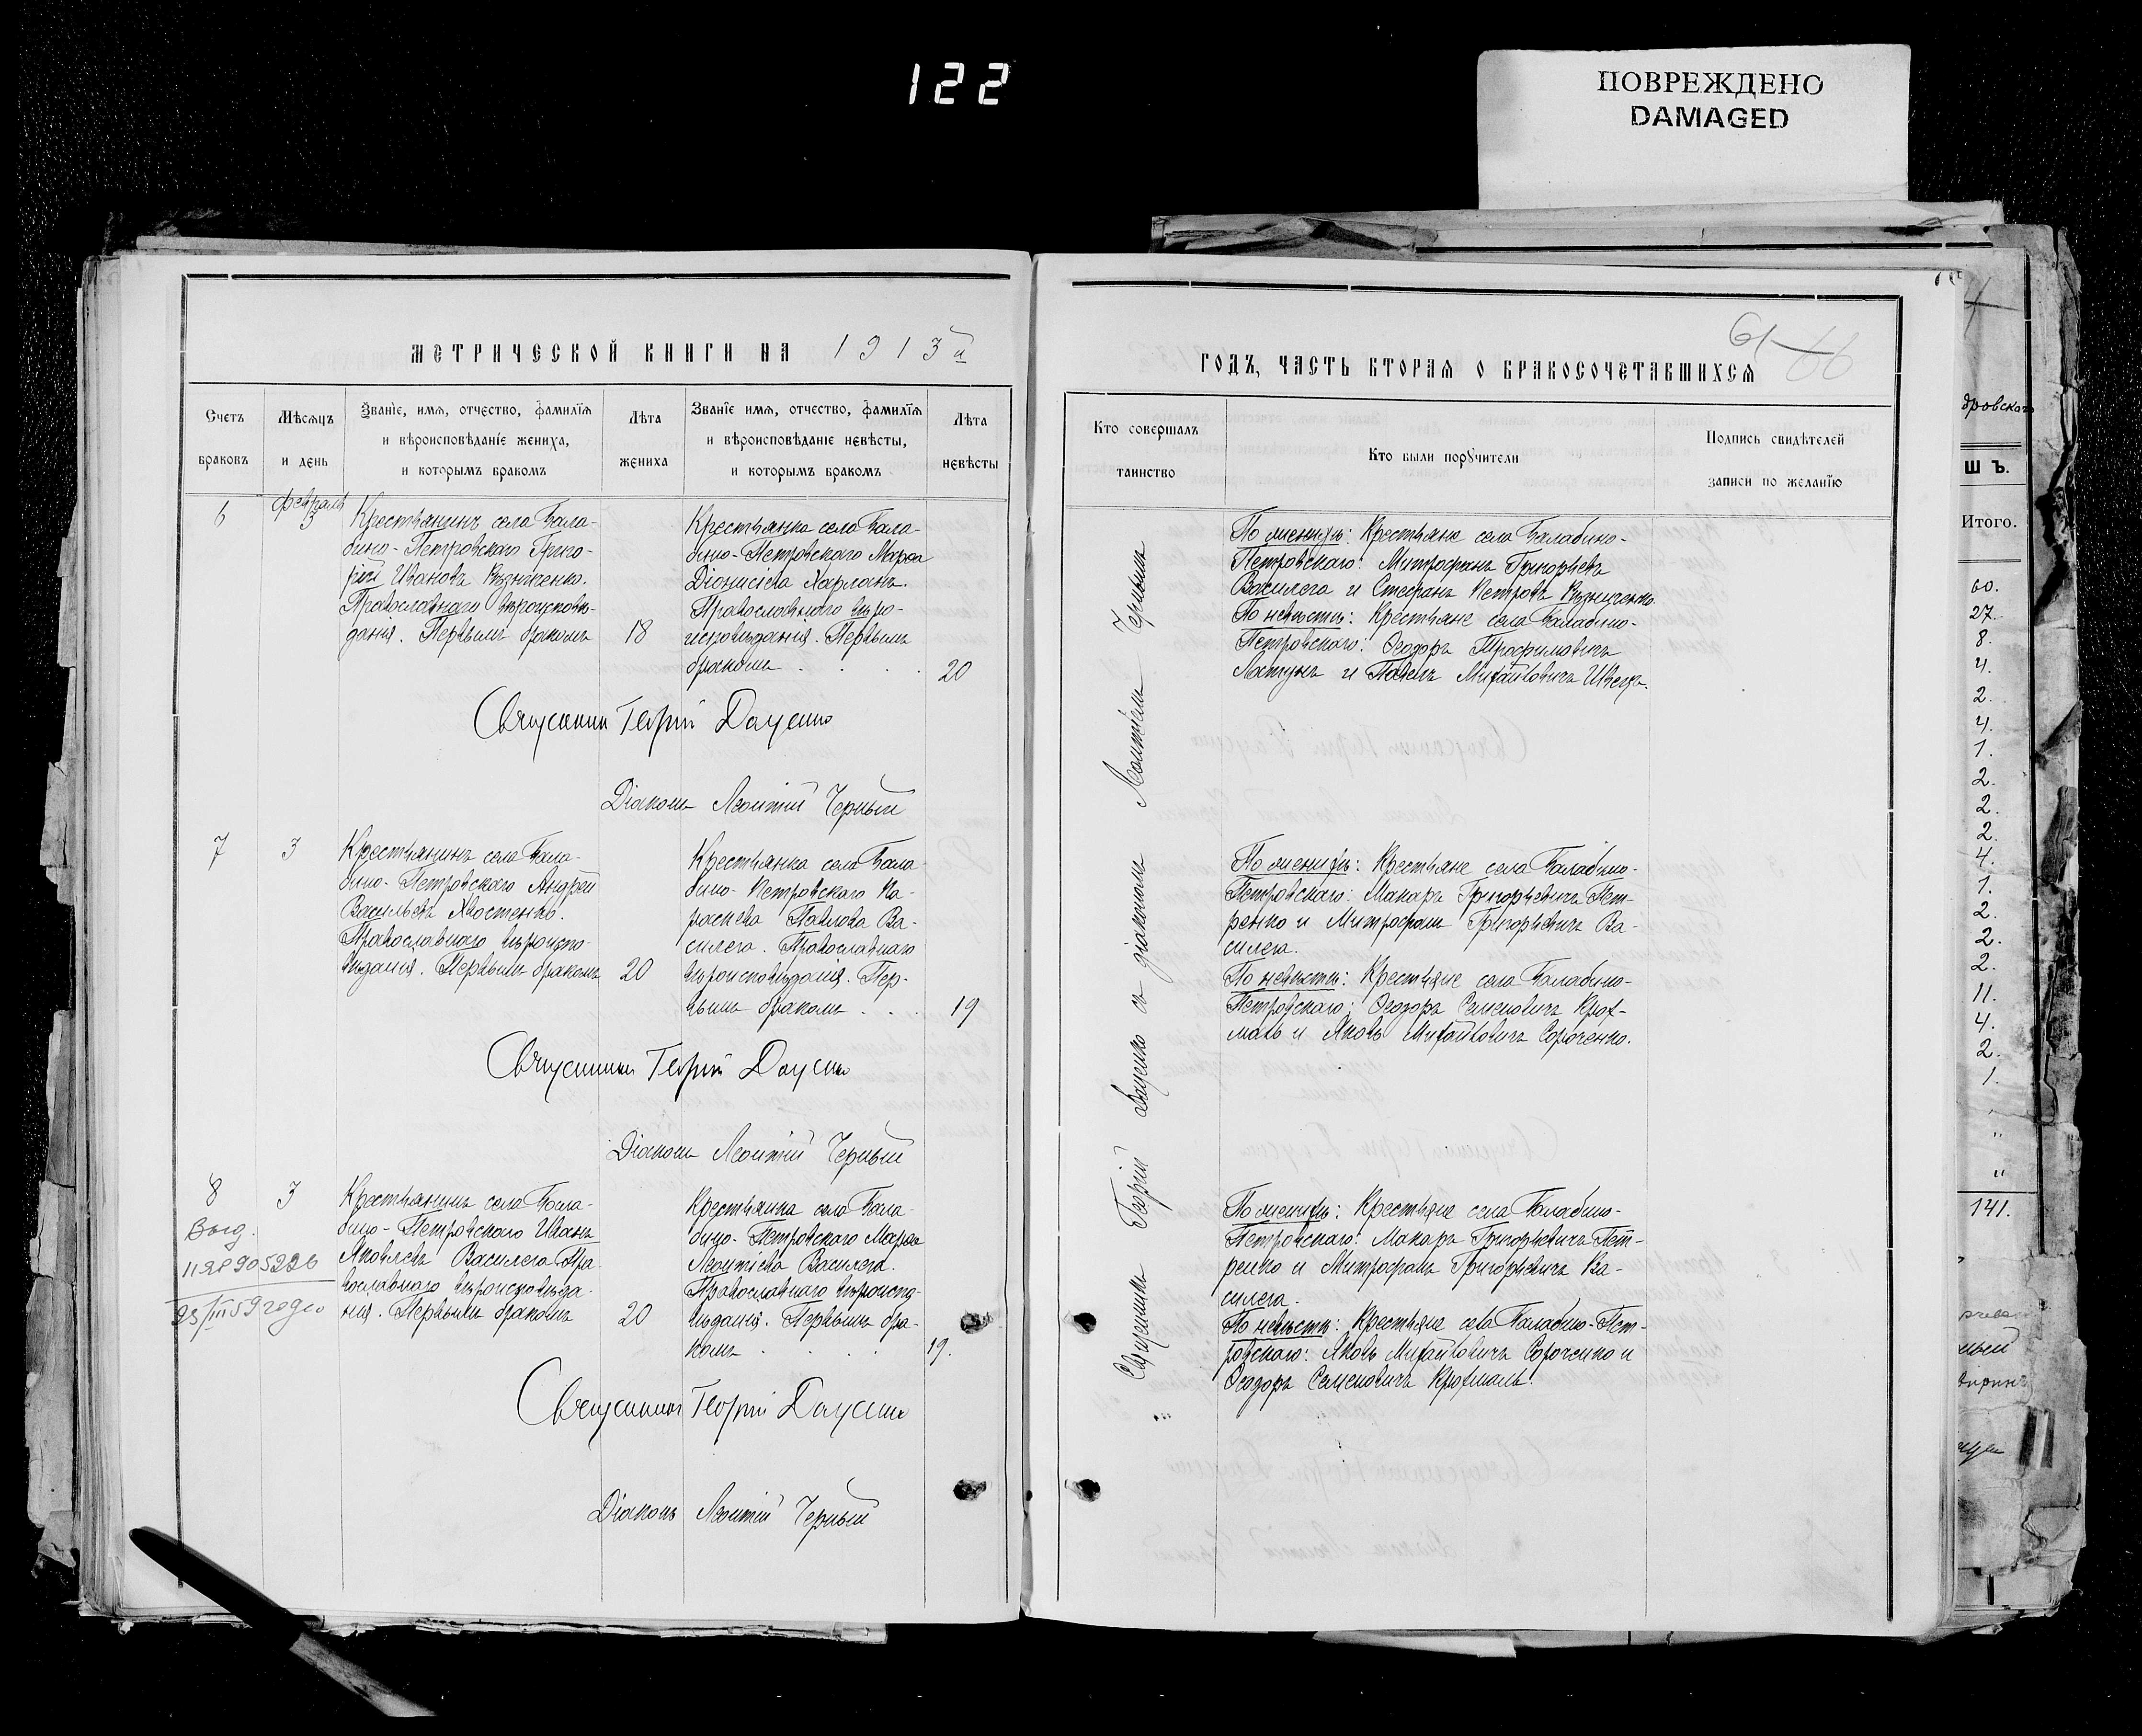 122
ПОВРЕЖДЕНО
DAMAGED
МЕТРИЧЕСКОЙ КНИГИ НА 1913й
Счетъ браковъ
Мѣсяцъ и день
Званіе, имя, отчество, фамилія и вѣроисповѣданіе жениха, и которымъ бракомъ
Лѣта жениха
Званіе имя, отчество, фамилія и вѣроисповѣданіе невѣсты, и которымъ бракомъ
Лѣта невѣсты
6
февраля
3
Крестьянинъ села Бала-
бино-Петровскаго Григо-
рій Ивановъ
Православнаго вѣроисповѣ-
данія. Первымъ бракомъ
18
Крестьянка села Бала-
бино-Петровскаго Марѳа
Діонисіева Харланъ.
Православнаго вѣро-
исповѣданія. Первымъ
бракомъ . . .
20
Священникъ Георгій Доценко
Діаконъ Леонтій Черный
7
3
Крестьянинъ села Бала-
бино-Петровскаго Андрей
Васильевъ Хвостенко.
Православнаго вѣроиспо-
вѣданія. Первымъ бракомъ
20
Крестьянка села Бала-
бино-Петровскаго Па-
раскева Павлова Ва-
силега. Православнаго
вѣроисповѣданія. Пер-
вымъ бракомъ . . .
19
Священникъ Георгій Доценко
Діаконъ Леонтій Черный
8
3
Выд.
23/III 59 года
Крестьянинъ села Бала-
бино-Петровскаго Иванъ
Яковлевъ Василега Пра-
вославнаго вѣроисповѣда-
нія. Первымъ бракомъ
20
Крестьянка села Бала-
бино-Петровскаго Марѳа
Леонтіева Василега.
Православнаго вѣроиспо-
вѣданія. Первымъ бра-
комъ . . . .
19.
Священникъ Георгій Доценко
Діаконъ Леонтій Черный
ГОДЪ, ЧАСТЬ ВТОРАЯ О БРАКОСОЧЕТАВШИХСЯ
61
66
Кто совершалъ таинство
Кто были поручители
Подпись свидѣтелей записи по желанію
Священникъ Георгій Доценко съ діакономъ Леонтіемъ Чернымъ
По женихѣ: Крестьяне села Балабино-
Петровскаго: Митрофанъ Григорьевъ
Василега и Стефанъ Петровъ
По невѣстѣ: Крестьяне села Балабино-
Петровскаго: Ѳеодоръ Трофимовичъ
Лантухъ и Павелъ Михайловичъ Швецъ.
По женихѣ: Крестьяне села Балабино-
Петровскаго: Макаръ Григорьевичъ Пет-
ренко и Митрофанъ Григорьевичъ Ва-
силега.
По невѣстѣ: Крестьяне села Балабино-
Петровскаго: Ѳеодоръ Семеновичъ Крох-
маль и Яковъ Михайловичъ Сороченко.
По женихѣ: Крестьяне села Балабино-
Петровскаго: Макаръ Григорьевичъ Пет-
ренко и Митрофанъ Григорьевичъ Ва-
силега.
По невѣстѣ: Крестьяне села Балабино-Пет-
ровскаго: Яковъ Михайловичъ Сороченко и
Ѳеодоръ Семеновичъ Крохмаль.
дровскаго
Ш Ъ.
Итого.
60.
27.
8.
4.
2.
4.
1.
2.
2.
2.
4.
1.
2.
2.
2.
11.
4.
2.
1.
"
"
141.